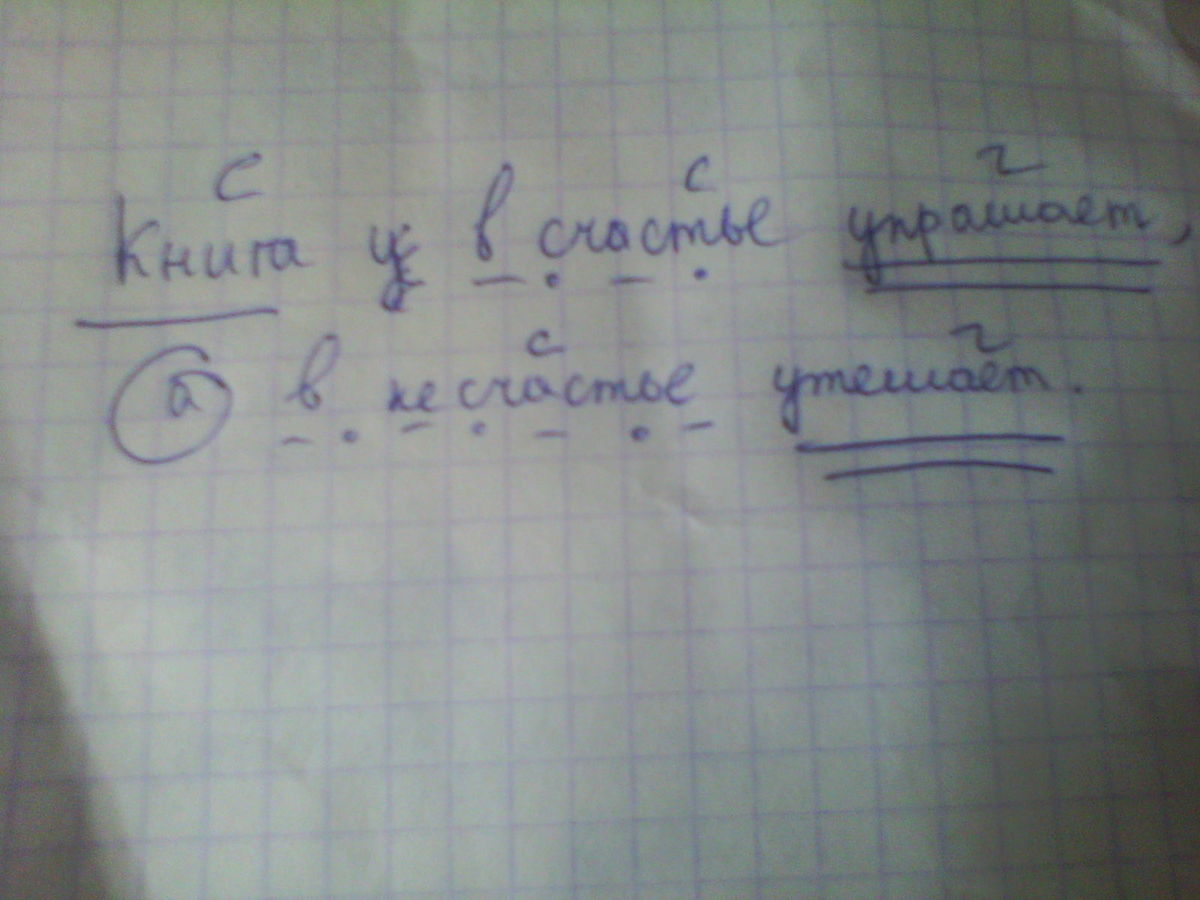 с с г
Книга в счастье украшает,
с г
а в несчастье утешает.